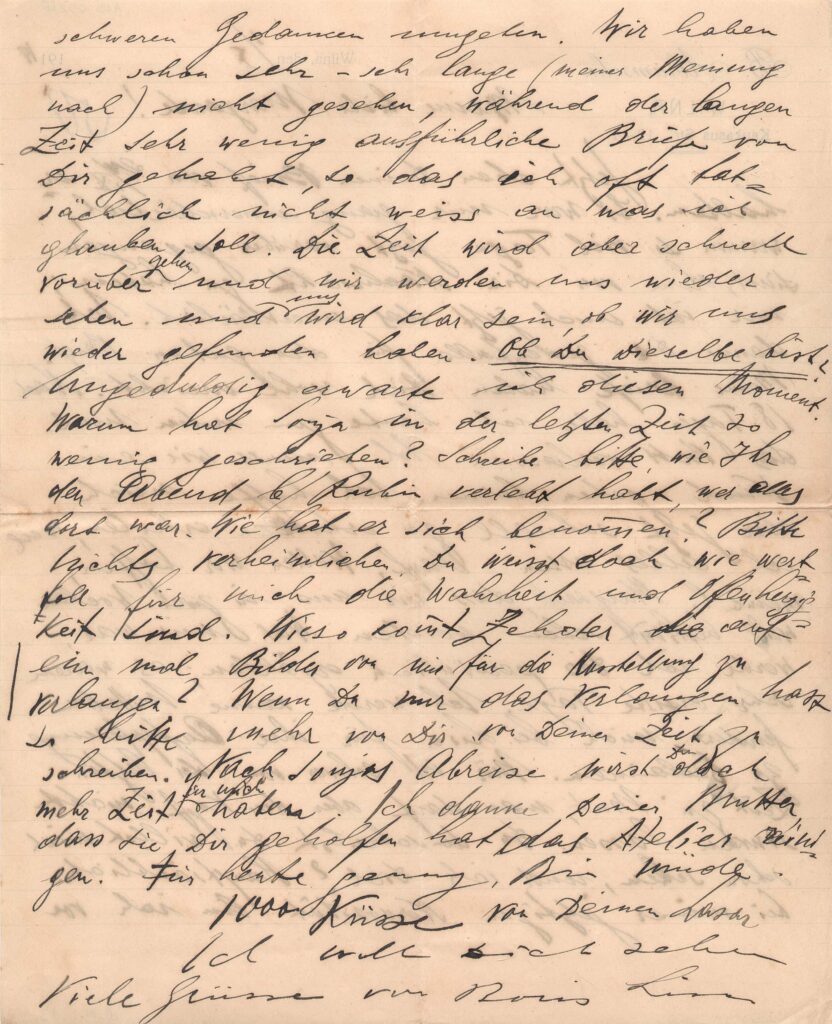 schweren Gedanken umgeben. Wir haben
uns schon sehr – sehr lange (meiner Meinung
nach) nicht gesehen, während der langen
Zeit sehr wenig ausführliche Briefe von
Dir gehabt, so das ich oft tat=
sächlich nicht weiss an was ich
glauben soll. Die Zeit wird aber schnell
vorüber gehen und wir werden uns wieder
sehen und uns wird klar sein, ob wir uns
wieder gefunden haben. Ob Du Dieselbe bist?
Ungeduldig erwarte ich diesen Moment.
Warum hat Sonja in der letzten Zeit so
wenig geschrieben? Schreibe bitte, wie Ihr
den Abend b/ Rubin verlebt habt, wer das
dort war. Wie hat er sich benommen? Bitte
nichts verheimlichen, Du weisst doch wie wert=
voll für mich die Wahrheit und Offenherzig=
keit sind. Wieso kommt auf
ein mal Bilder von mir für die Ausstellung zu
verlangen? Wenn Du nur das Verlangen hast
so bitte mehr von Dir von Deiner Zeit zu
schreiben. Nach Sonjas Abreise wirst Du doch
mehr Zeit für mich haben. Ich danke Deiner Mutter,
dass sie Dir geholfen hat das Atelier reini-
gen. Für heute genug, Bin müde.
1000 Küsse von Deinen Lasar
Ich will Dich sehen
Viele Grüsse von Boris